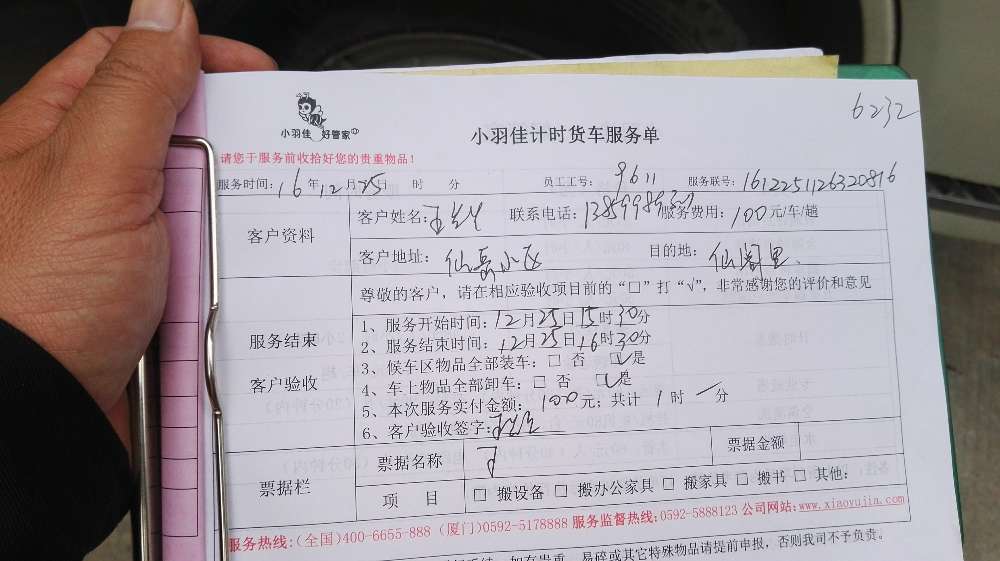 6232
小羽佳 好管家
小羽佳计时货车服务单
请您于服务前收拾好您的贵重物品！
服务时间：16年12月25日 时 分 员工工号：9611 服务联号：1612251126320816
客户资料
客户姓名：王 联系电话： 服务费用：100元/车/趟
客户地址：仙岳小区 目的地：仙阁里
服务结束
客户验收
尊敬的客户，请在相应验收项目前的“□”打“√”，非常感谢您的评价和意见
1、服务开始时间：12月25日15时30分
2、服务结束时间：12月25日16时30分
3、候车区物品全部装车：□ 否 □是
4、车上物品全部卸车：□ 否 □是
5、本次服务实付金额：100元；共计 1 时 一 分
6、客户验收签字：王
票据栏
票据名称 票据金额
项 目 □ 搬设备 □ 搬办公家具 □ 搬家具 □ 搬书 □ 其他：
服务热线：(全国)400-6655-888 (厦门)0592-5178888 服务监督热线：0592-5888123 公司网站：www.xiaoyujia.com
如有贵重、易碎或其它特殊物品请提前申报，否则我司不予负责。